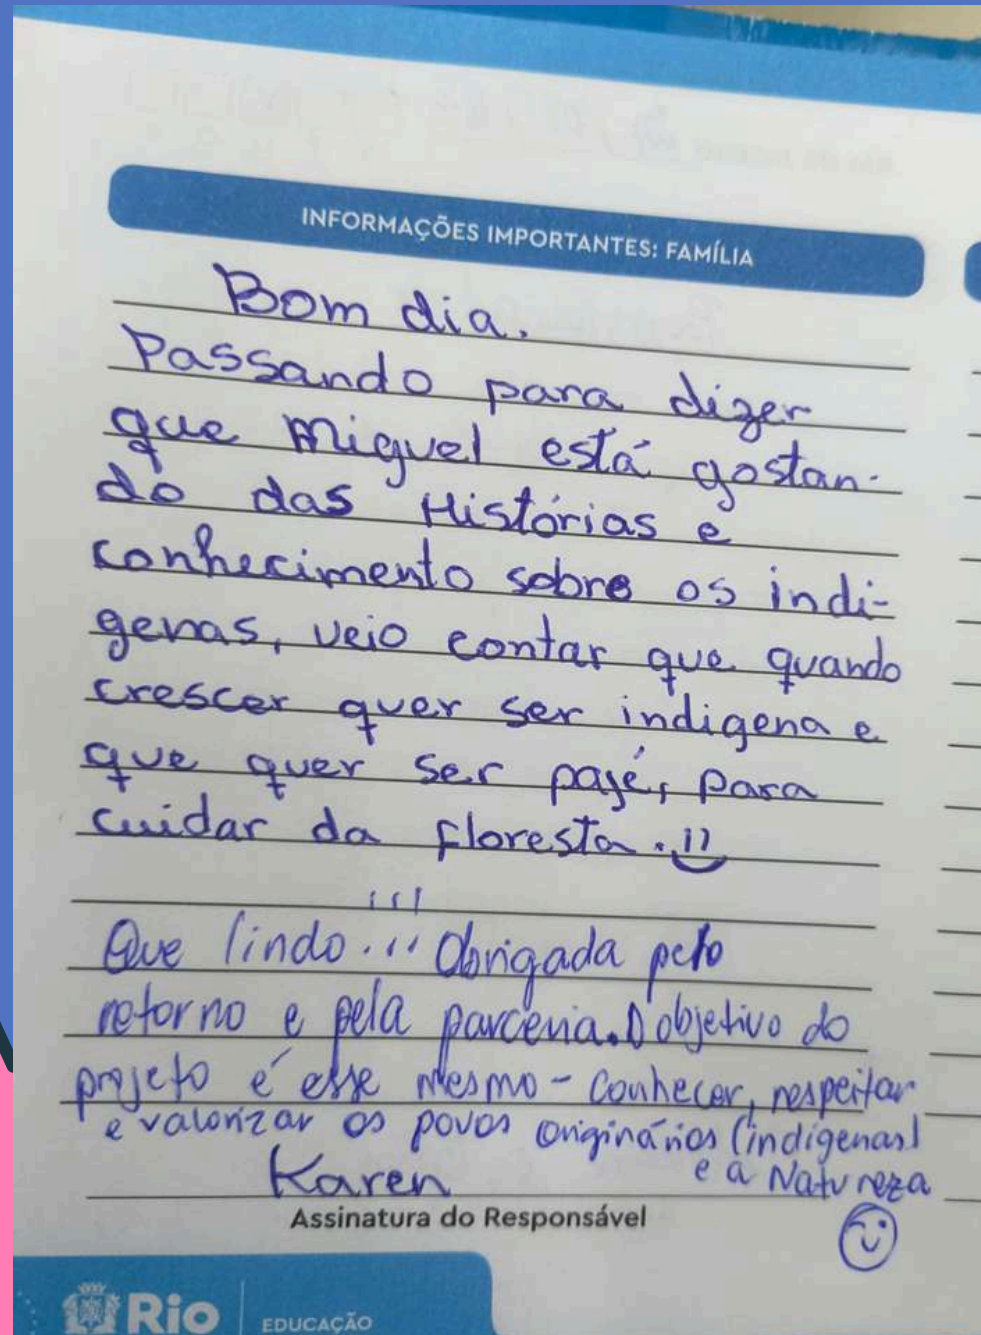 INFORMAÇÕES IMPORTANTES: FAMÍLIA
Bom dia.
Passando para dizer
que Miguel está gostan-
do das Histórias e
conhecimento sobre os indí-
genas, veio contar que quando
crescer quer ser indigena e
que quer ser pajé, para
cuidar da floresta.
Que lindo...!!! Obrigada pelo
retorno e pela parceria. O objetivo do
projeto é esse mesmo - conhecer, respeitar
e valorizar os povos originários (indígenas)
e a Natureza
Karen
Assinatura do Responsável
Rio EDUCAÇÃO